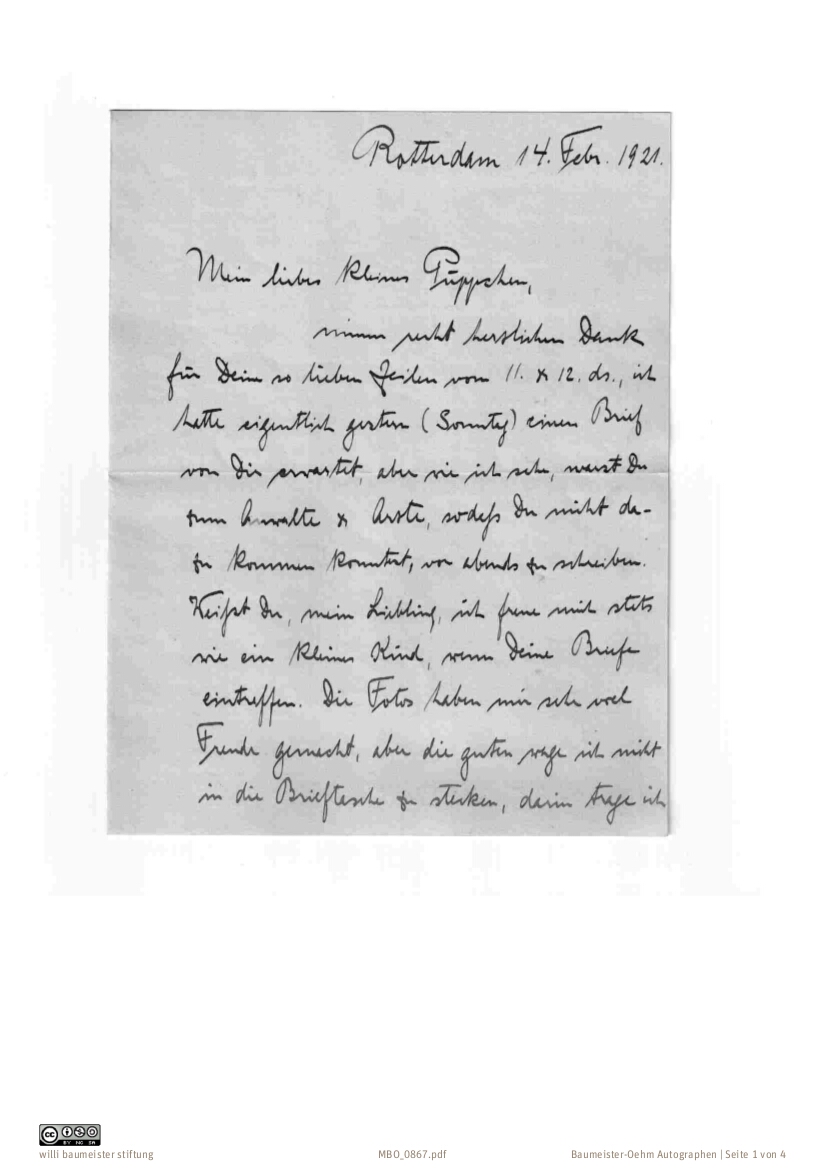 Rotterdam 14. Febr. 1921.
Mein liebes kleines Püppchen,
nimm recht herzlichen Dank
für Deine so lieben Zeilen vom 11. & 12. ds., ich
hatte eigentlich gestern (Sonntag) einen Brief
von Dir erwartet, aber wie ich sehe, warst Du
zum Anwalte & Arzte, sodaß Du nicht da-
zu kommen konntest, vor abends zu schreiben.
Weißt Du, mein Liebling, ich freue mich stets
wie ein kleines Kind, wenn Deine Briefe
eintreffen. Die Fotos haben mir sehr viel
Freude gemacht, aber die guten wage ich nicht
in die Brieftasche zu stecken, darin trage ich
CC BY NC SA
willi baumeister stiftung
MBO_0867.pdf
Baumeister-Oehm Autographen | Seite 1 von 4